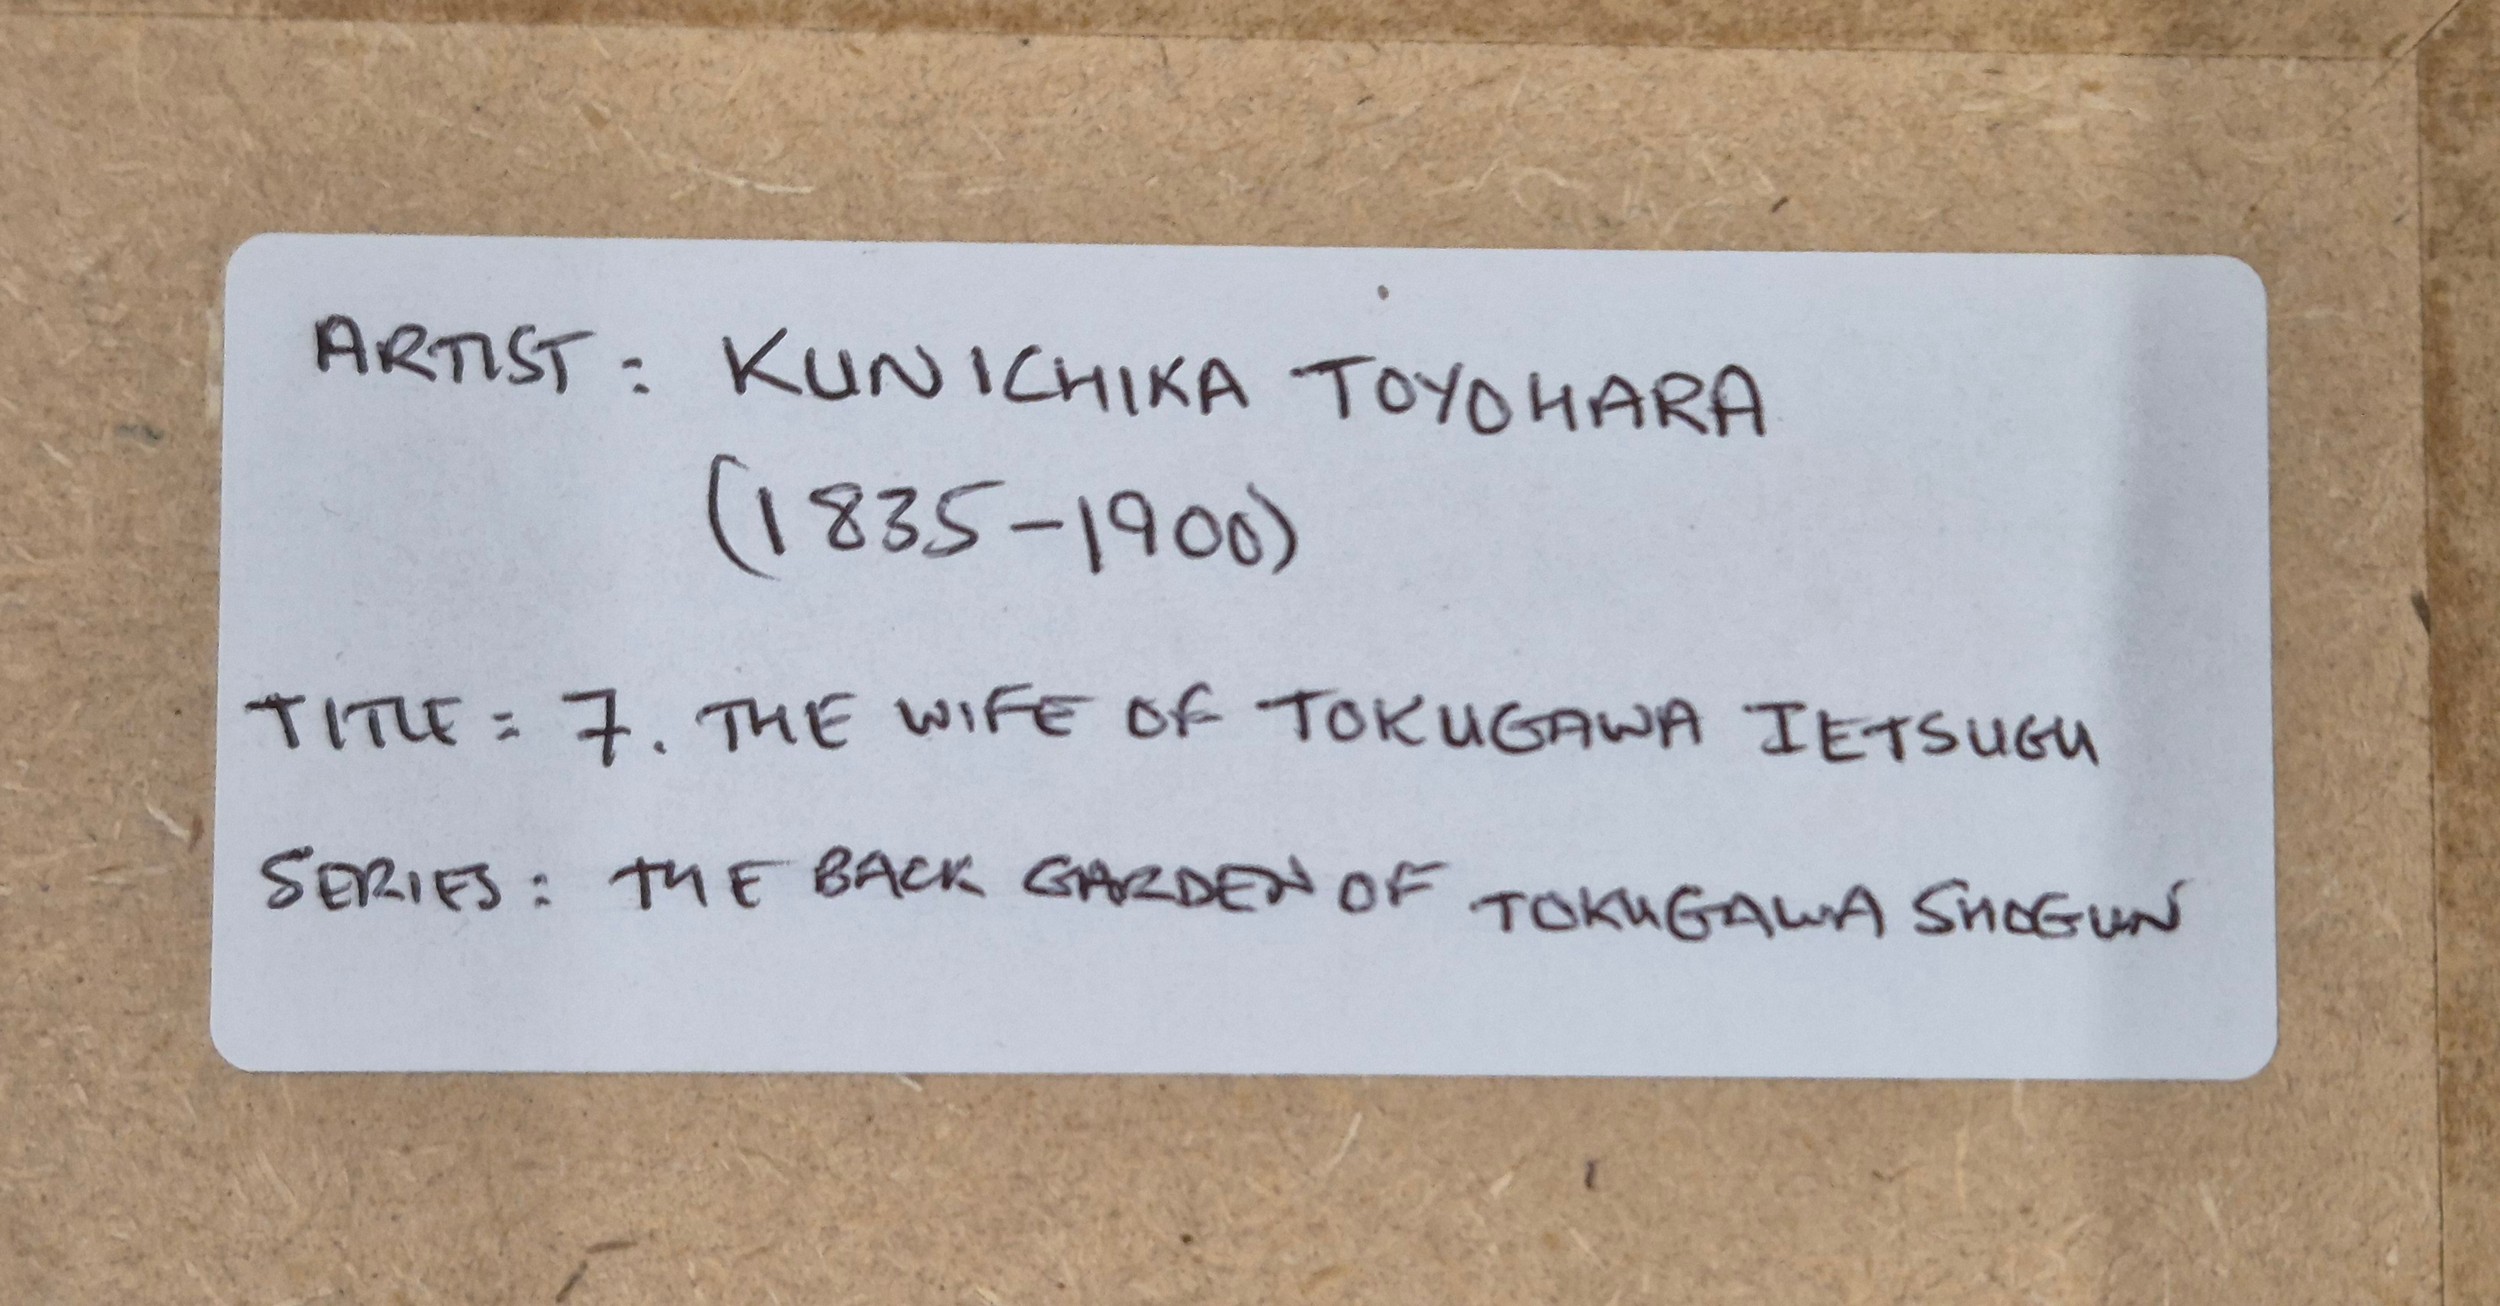 ARTIST: KUNICHIKA TOYOHARA
(1835-1900)
TITLE: 7. THE WIFE OF TOKUGAWA IETSUGU
SERIES: THE BACK GARDEN OF TOKUGAWA SHOGUN